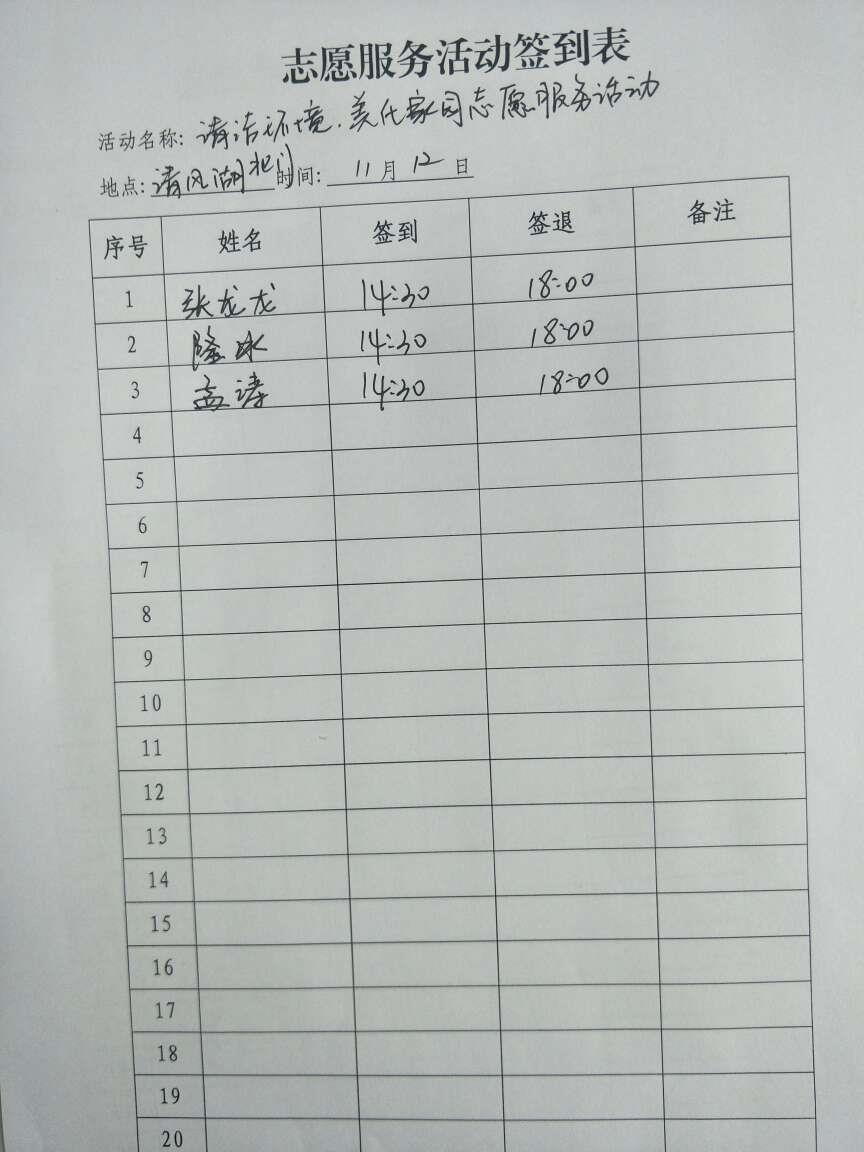 志愿服务活动签到表
活动名称: 清洁环境,美化家园志愿服务活动
地点: 清风湖北门 时间: 11月12日
序号 姓名 签到 签退 备注
1 张龙龙 14:30 18:00
2 隆冰 14:30 18:00
3 孟涛 14:30 18:00
4
5
6
7
8
9
10
11
12
13
14
15
16
17
18
19
20